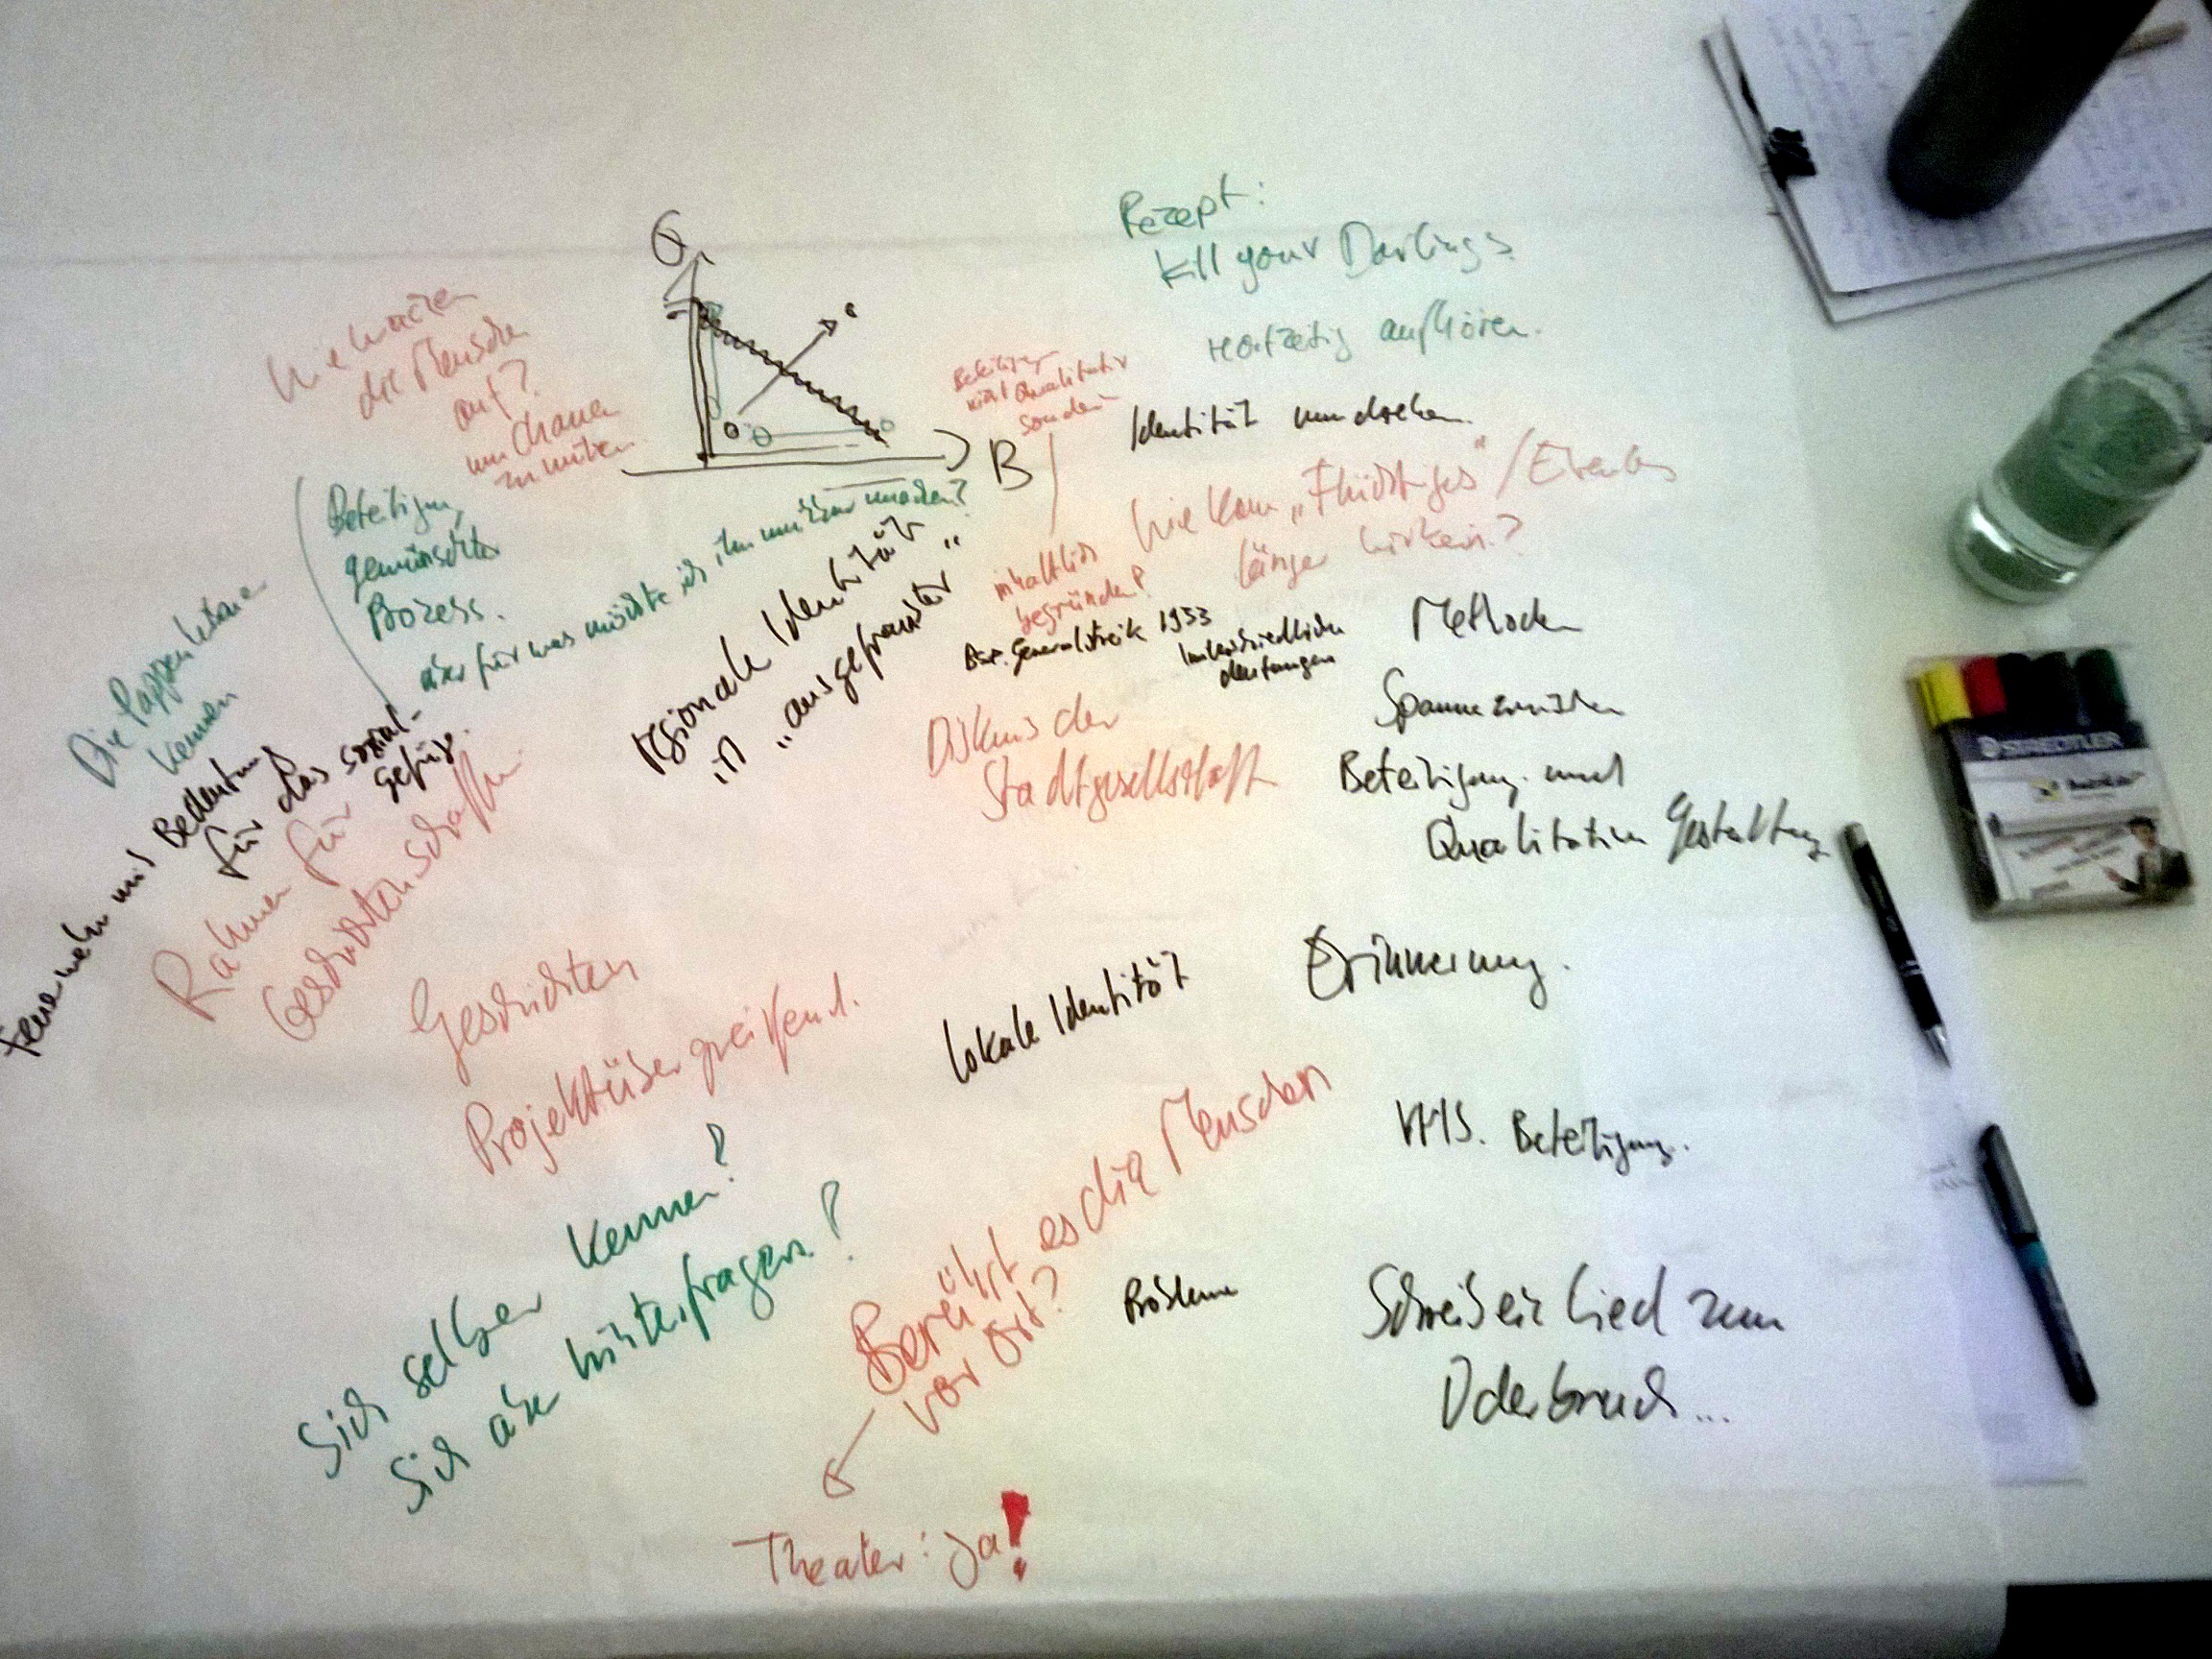 Rezept:
kill your Darlings
rechtzeitig aufhören.
G
B
die Menschen
auf?
zu
Beteiligung
nicht Qualitativ
sondern
inhaltlich
begründen?
Identität umdrehen
Wie kann „Flüchtiges“ / Events
länger wirken?
Beteiligung,
gewünschter
Prozess.
aber für was möchte ich ihn nutzbar machen?
regionale Identität
ist „ausgefranster“
Bsp. Generalstreik 1953
unterschiedliche
deutungen
Methoden
Die Pappenheimer
kennen
Feuerwehr und Bedeutung
für das sozial-
gefüge.
Rahmen für
Geschichten schaffen.
Diskurs der
Stadtgesellschaft
Spanne zwischen
Beteiligung und
Qualitativer Gestaltung
Geschichten
Projektübergreifend.
lokale Identität
Erinnerung.
VHS. Beteiligung.
Sich selber kennen?
Sich aber hinterfragen?
Berührt es die Menschen
vor Ort?
Theater: ja!
Probleme
Schreib ein Lied zum
Oderbruch...
STAEDTLER